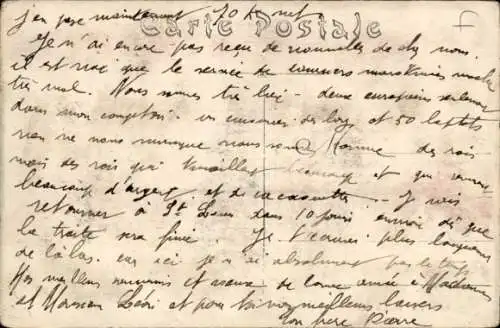 j'en pese maintenant 70 K net
Carte Postale
Je n'ai encore pas reçu de nouvelles de chez nous.
il est vrai que le service de courriers maritimes marche
très mal. Nous sommes très bien - deux européens seulement
dans mon comptoir. et 50 laptots
rien ne nous manque nous sommes comme des rois
mais des rois qui travaillent beaucoup et qui
beaucoup d'argent et de cacaouettes -- Je vais
retourner à St Louis dans 10 jours environ dès que
la traite sera finie. Je t'écrirai plus longuement
de là bas. car ici je n'ai absolument pas le temps
Mes meilleurs souvenirs et de bonne année à Madame
et Monsieur et pour toi mes meilleurs baisers
Ton père Pierre